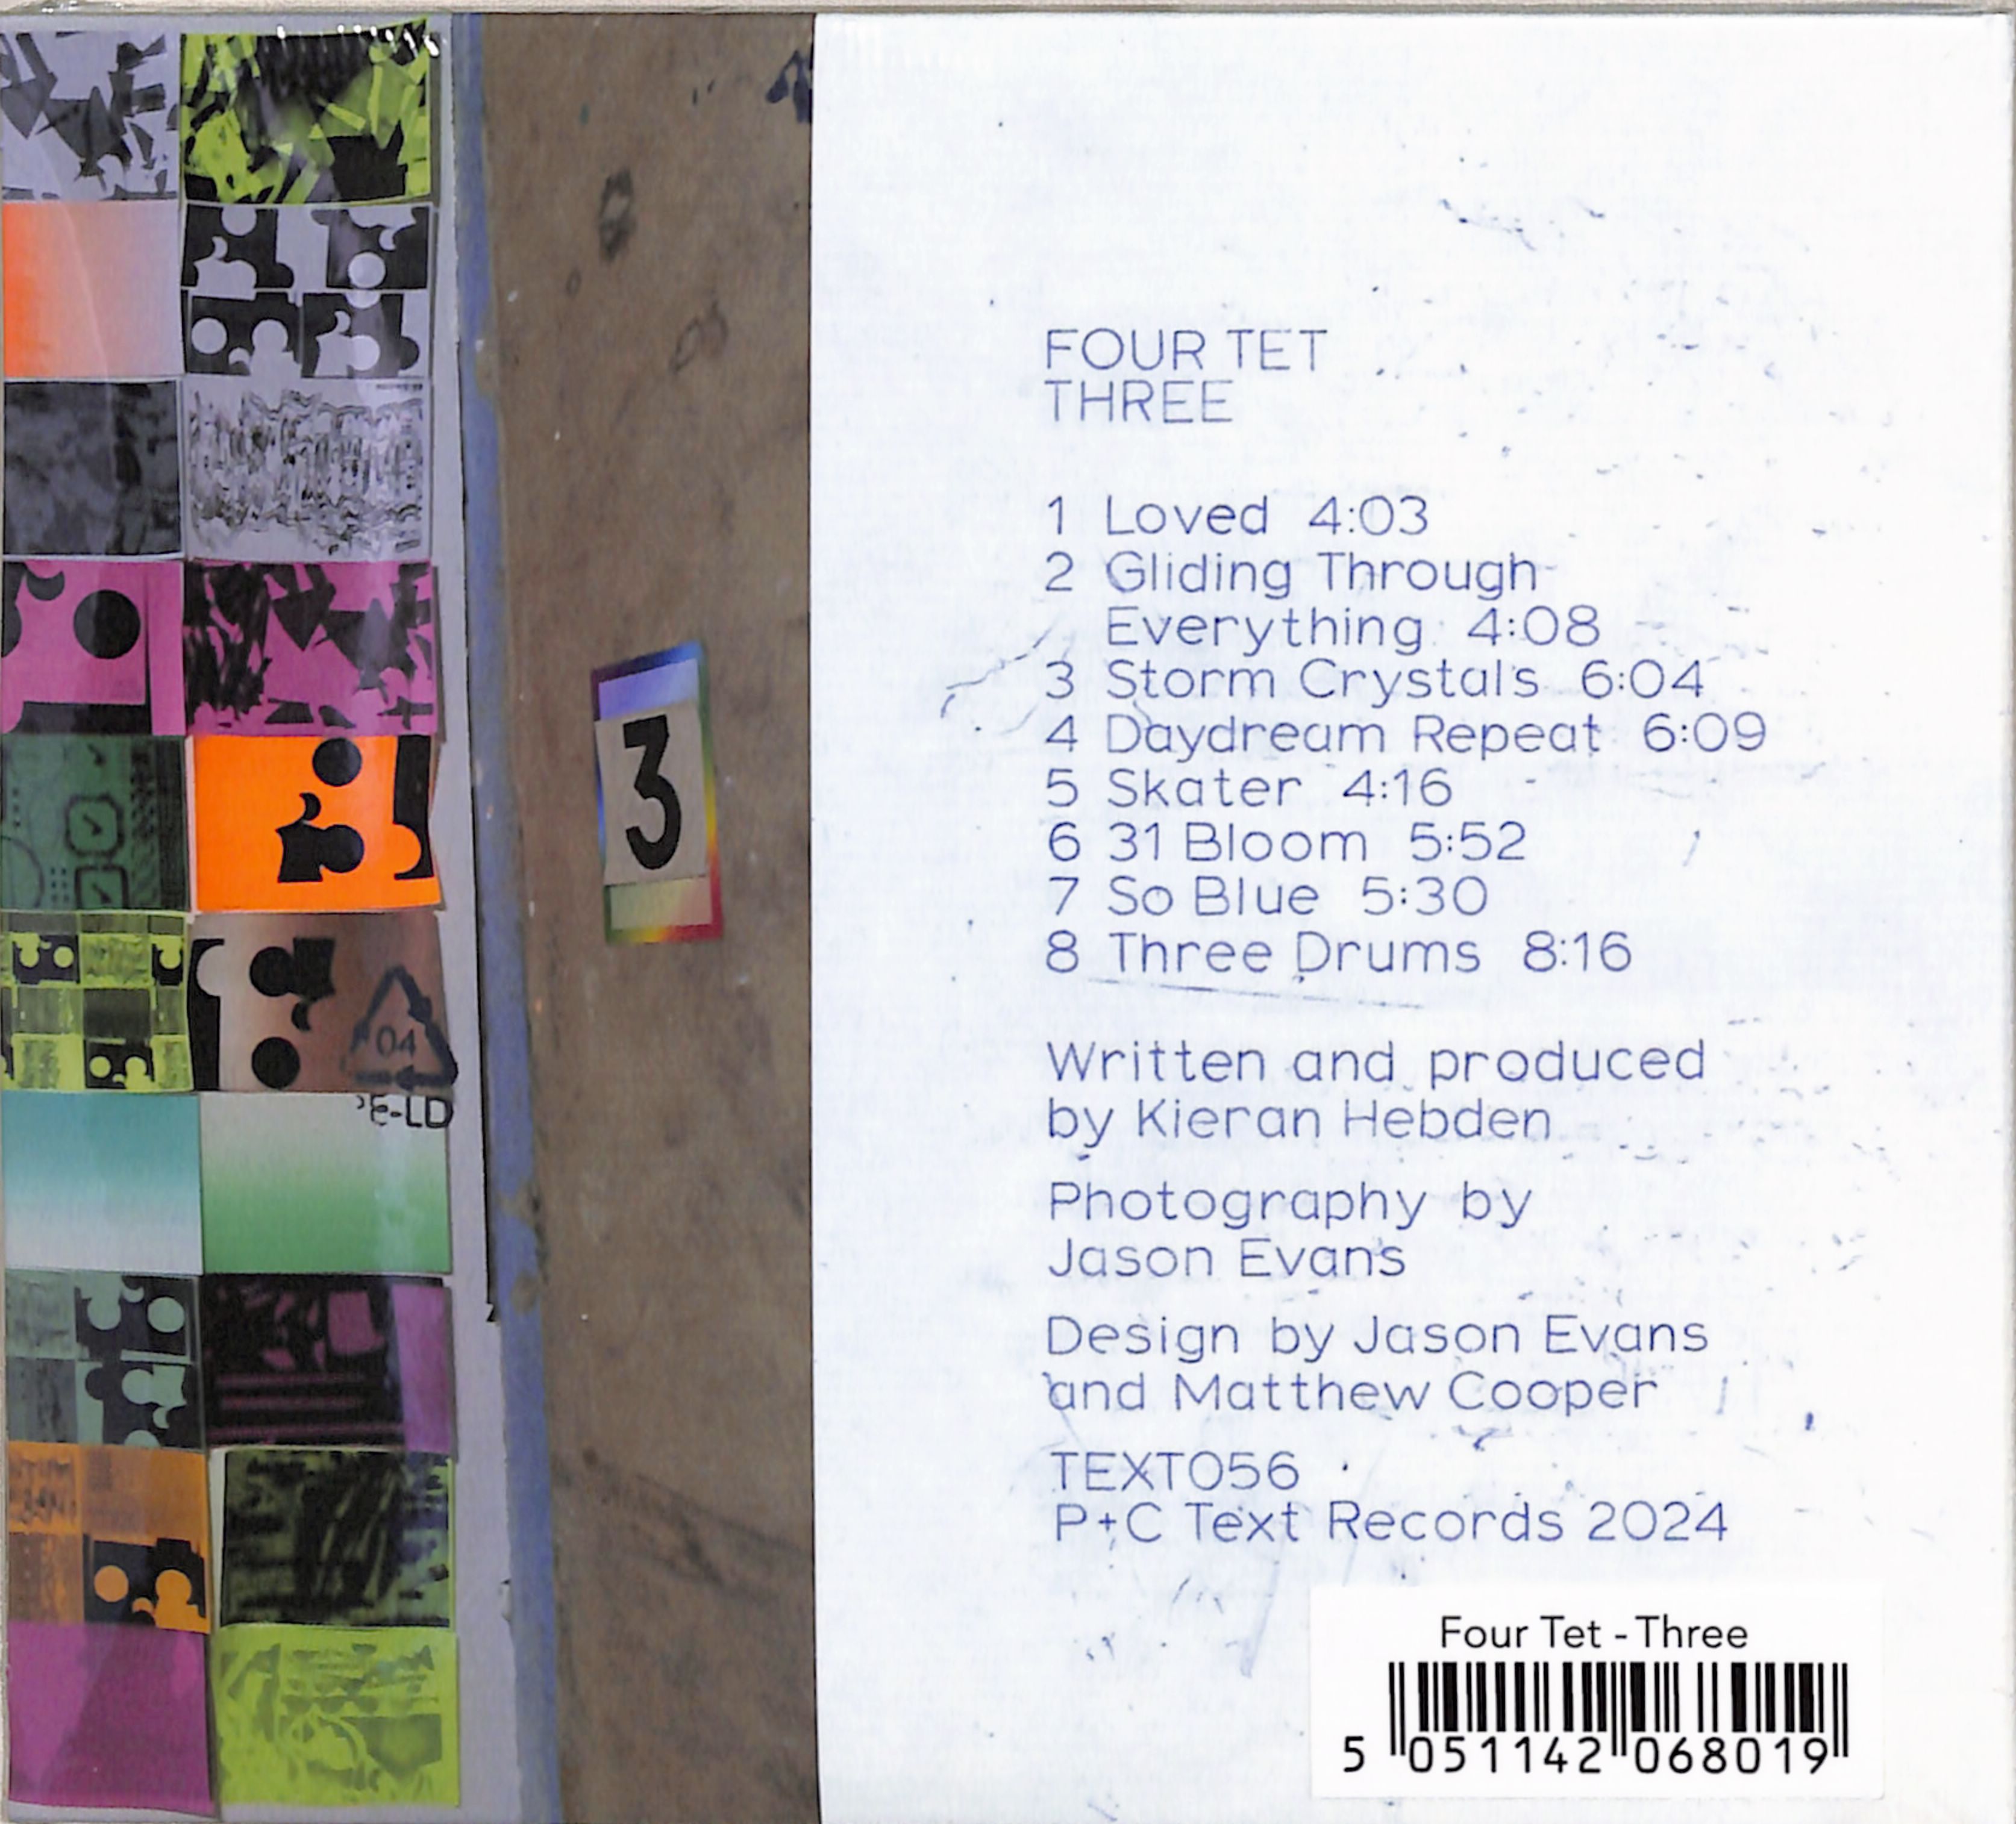 FOUR TET
THREE
1 Loved 4:03
2 Gliding Through
Everything 4:08
3 Storm Crystals 6:04
4 Daydream Repeat 6:09
5 Skater 4:16
6 31 Bloom 5:52
7 So Blue 5:30
8 Three Drums 8:16
Written and produced
by Kieran Hebden
Photography by
Jason Evans
Design by Jason Evans
and Matthew Cooper
TEXT056
P+C Text Records 2024
Four Tet - Three
5 051142 068019
3
04
PE-LD